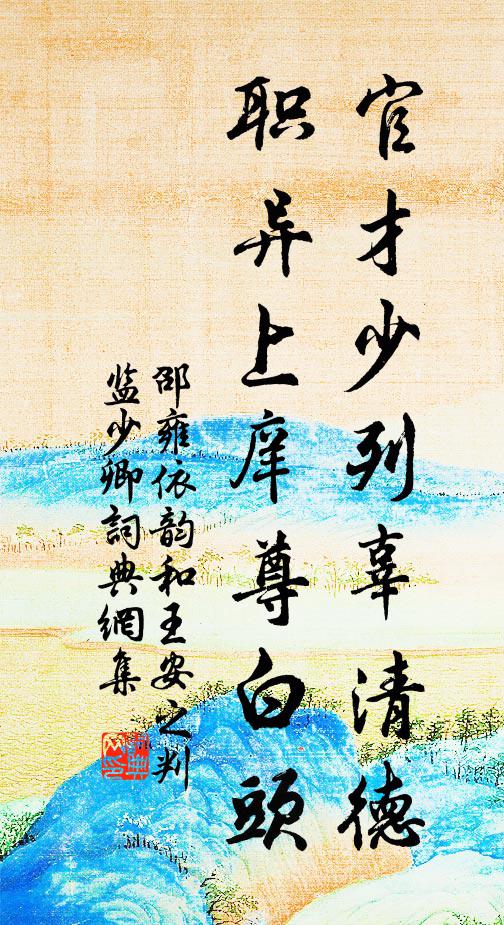 官才少列辜清德
职异上庠尊白頭
邵雍依韵和王安之判
监少卿詞典網集